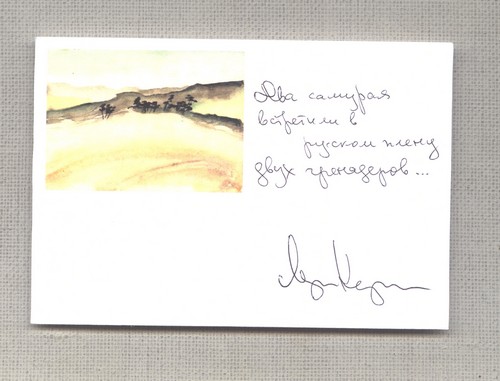 Два самурая
встретили в
русском плену
двух гренадеров...